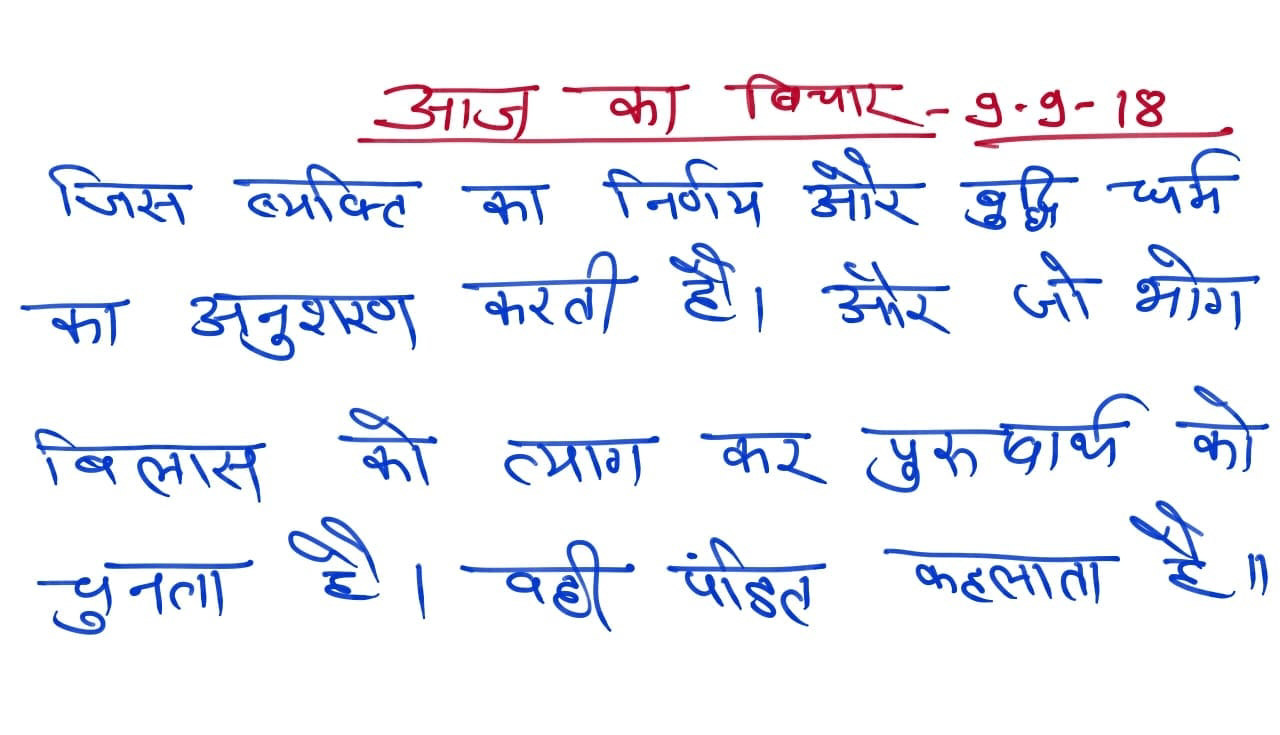 आज का बिचार - 9.9-18
जिस व्यक्ति का निर्णय और बुद्धि धर्म
का अनुशरण करती है। और जो भोग
बिलास को त्याग कर पुरुषार्थ को
चुनता है। वही पंडित कहलाता है॥